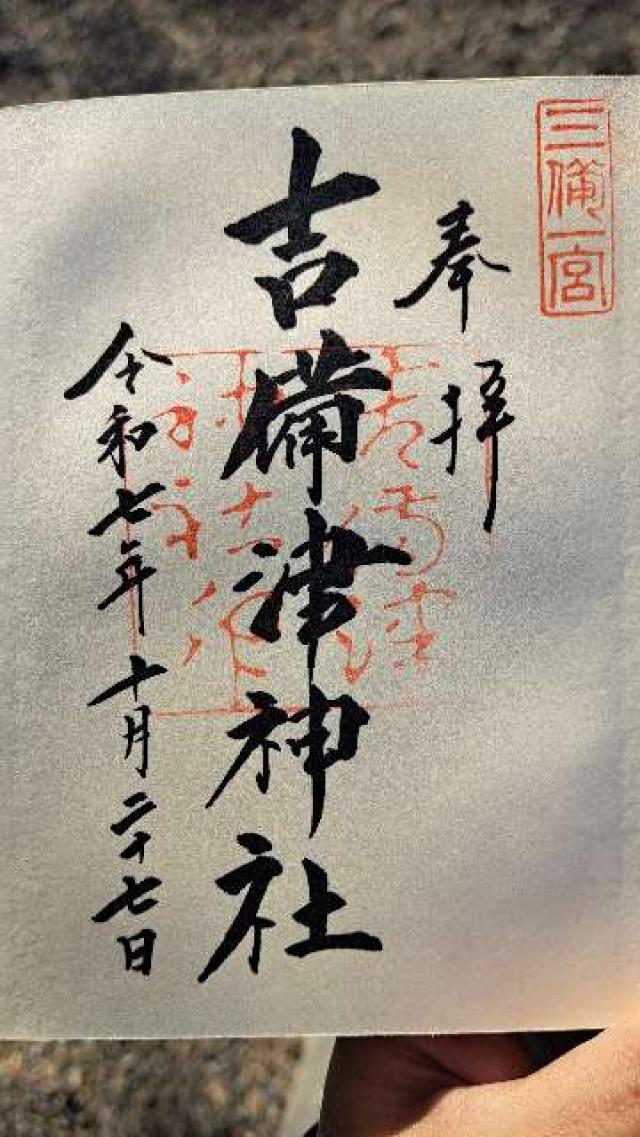 三備一宮
奉拝
吉備津神社
令和七年十月二十七日